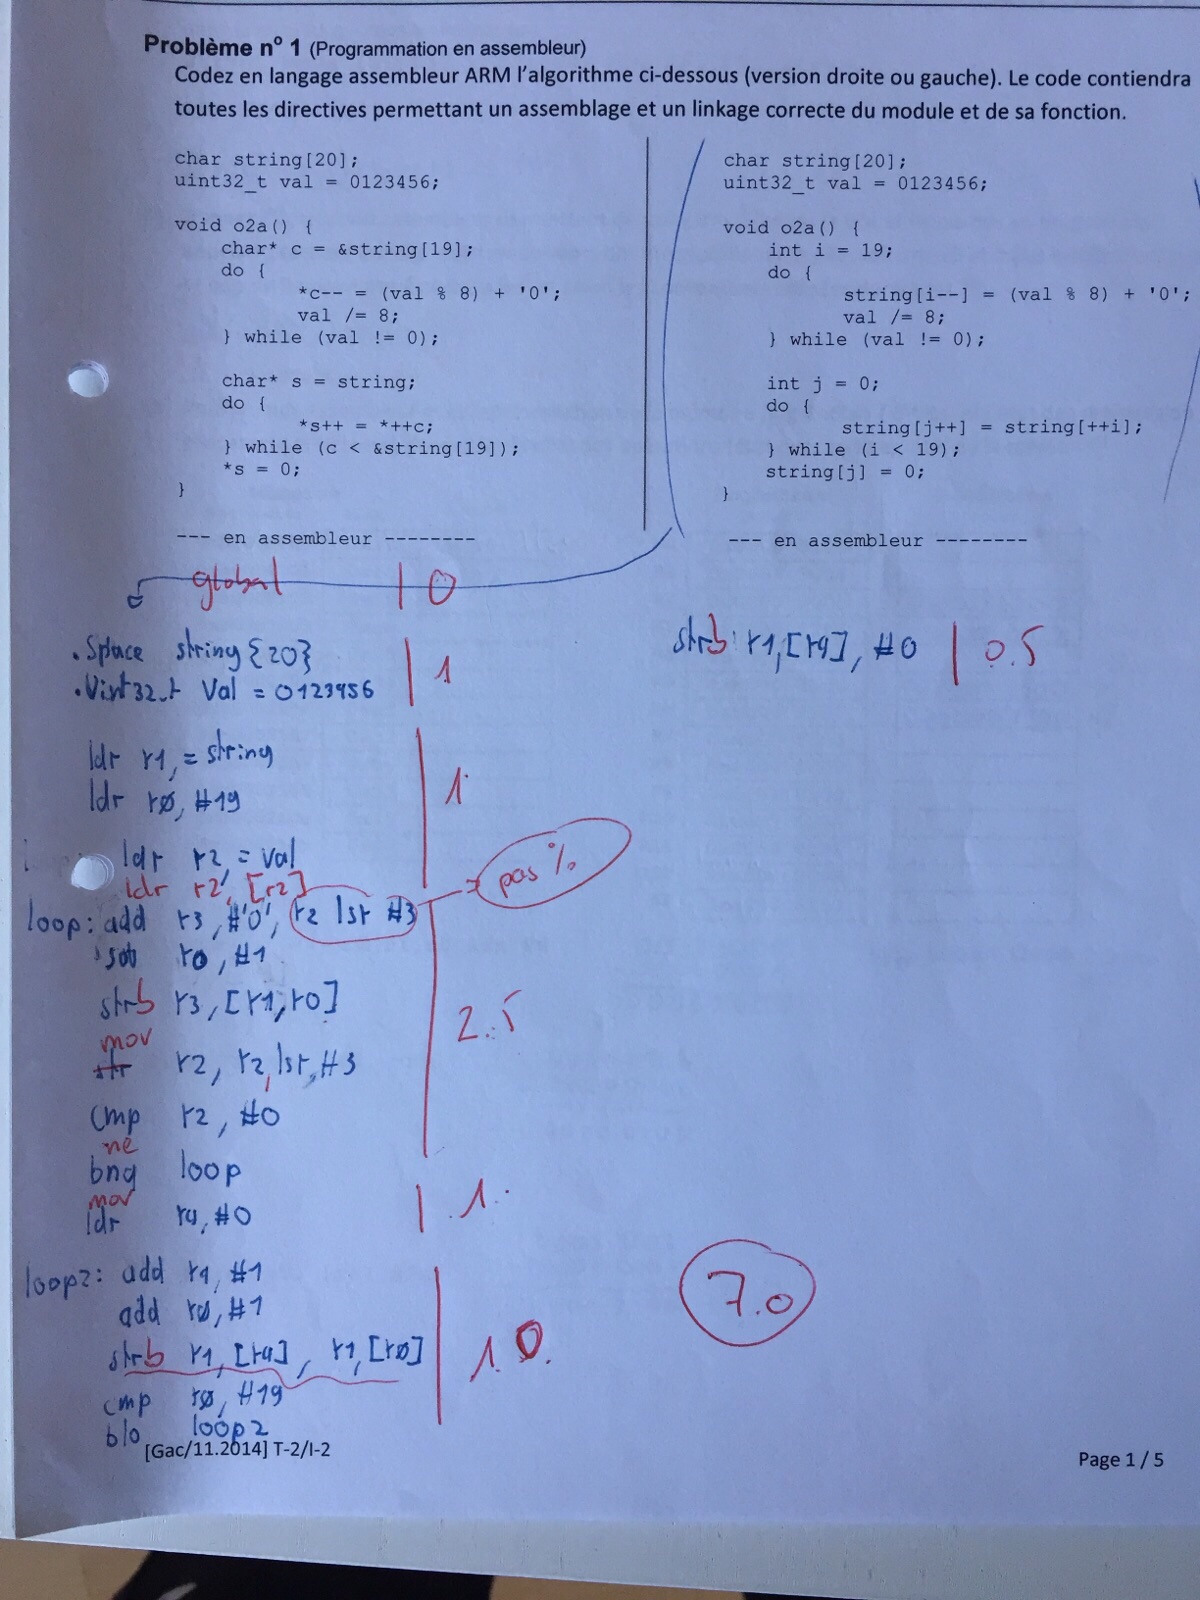 Problème n° 1 (Programmation en assembleur)
Codez en langage assembleur ARM l'algorithme ci-dessous (version droite ou gauche). Le code contiendra
toutes les directives permettant un assemblage et un linkage correcte du module et de sa fonction.
char string[20];
uint32_t val = 0123456;
void o2a() {
char* c = &string[19];
do {
*c-- = (val % 8) + '0';
val /= 8;
} while (val != 0);
char* s = string;
do {
*s++ = *++c;
} while (c < &string[19]);
*s = 0;
}
--- en assembleur --------
char string[20];
uint32_t val = 0123456;
void o2a() {
int i = 19;
do {
string[i--] = (val % 8) + '0';
val /= 8;
} while (val != 0);
int j = 0;
do {
string[j++] = string[++i];
} while (i < 19);
string[j] = 0;
}
--- en assembleur --------
global | 0
.Space string{20}
.Uint32_t Val = 0123456
1
ldr r1, = string
ldr r0, #19
1
ldr r2, = val
ldr r2, [r2]
loop: add r3, #'0', r2 lsr #3
pas %
sub r0, #1
strb r3, [r1, r0]
2.5
mov
str r2, r2, lsr, #3
cmp r2, #0
ne
bnq loop
mov
ldr r4, #0
1.
loop2: add r4, #1
add r0, #1
strb r1, [r4], r1, [r0]
1.0
cmp r0, #19
blo loop2
strb r1, [r4], #0 | 0.5
7.0
[Gac/11.2014] T-2/I-2
Page 1 / 5